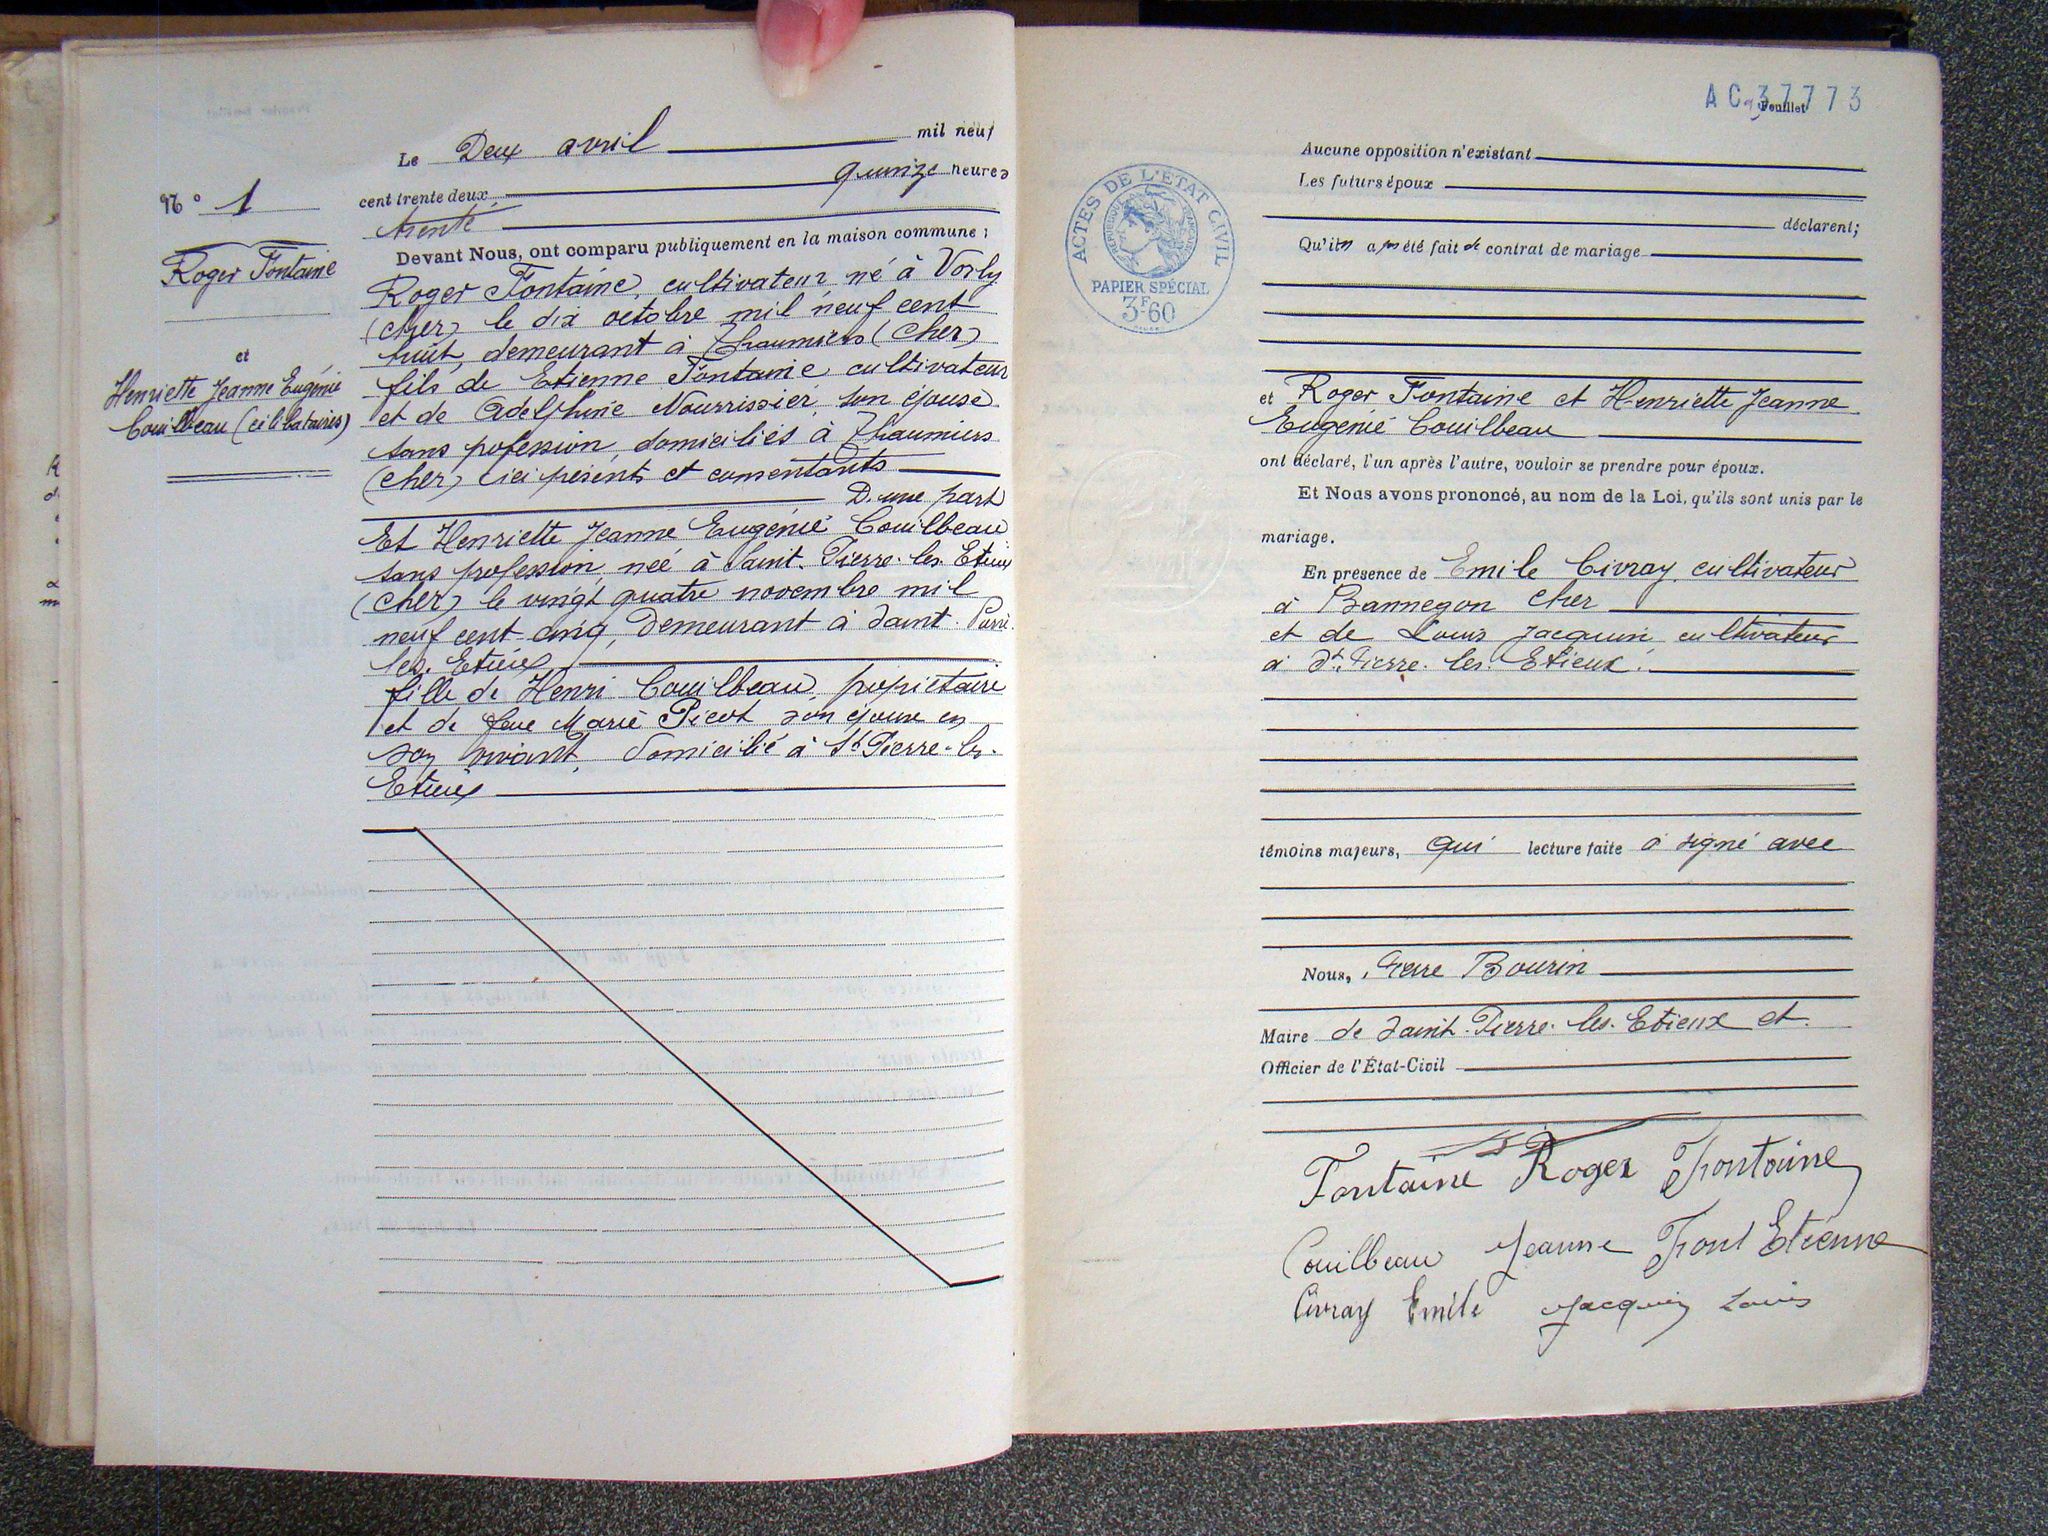 Le Deux avril mil neuf
cent trente deux quinze heures
trente
Devant Nous, ont comparu publiquement en la maison commune :
N° 1
Roger Fontaine
et
Henriette Jeanne Eugénie
Couilbeau (célibataires)
Roger Fontaine, cultivateur né à Vorly
(Cher) le dix octobre mil neuf cent
huit, demeurant à Thaumiers (Cher)
fils de Etienne Fontaine cultivateur
et de Adelphine Nourrissier, son épouse
sans profession, domiciliés à Thaumiers
(Cher) ici présents et consentants
D'une part
Et Henriette Jeanne Eugénie Couilbeau
sans profession, née à Saint-Pierre-les-Etieux
(Cher) le vingt quatre novembre mil
neuf cent cinq, demeurant à Saint-Pierre-
les-Etieux
fille de Henri Couilbeau, propriétaire
et de feue Marie Picot son épouse en
son vivant, domicilié à St Pierre-les-
Etieux
AC.37773
Feuillet
ACTES DE L'ETAT CIVIL
REPUBLIQUE FRANÇAISE
PAPIER SPÉCIAL
3F60
Aucune opposition n'existant
Les futurs époux
déclarent;
Qu'il n'a pas été fait de contrat de mariage
et Roger Fontaine et Henriette Jeanne
Eugénie Couilbeau
ont déclaré, l'un après l'autre, vouloir se prendre pour époux.
Et Nous avons prononcé, au nom de la Loi, qu'ils sont unis par le
mariage.
En présence de Emile Civray, cultivateur
à Bannegon Cher
et de Louis Jacquin, cultivateur
à St. Pierre-les-Etieux.
témoins majeurs, qui lecture faite a signé avec
Nous, Pierre Bourin
Maire de Saint-Pierre-les-Etieux et
Officier de l'État-Civil
Fontaine Roger Fontaine
Couilbeau Jeanne Font Etienne
Civray Emile Jacquin Louis